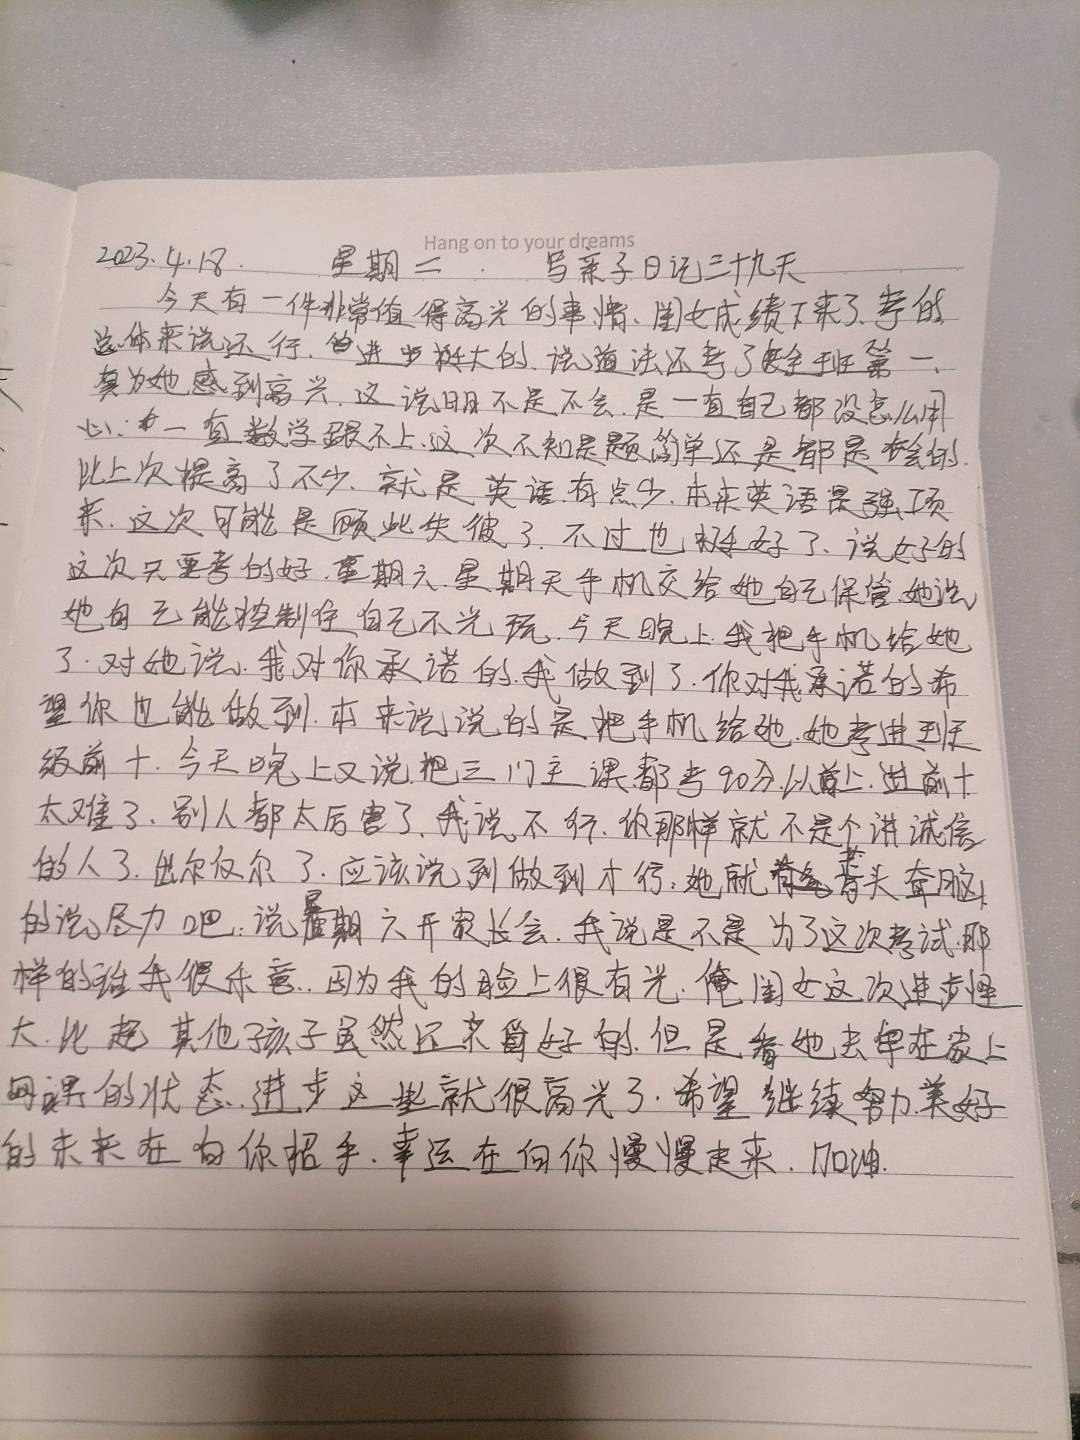 Hang on to your dreams
2023.4.18. 星期二. 写亲子日记三十九天
今天有一件非常值得高兴的事情、闺女成绩下来了、考的
总体来说还行、进步挺大的、说道法还考了全班第一、
真为她感到高兴、这说明不是不会、是一直自己都没怎么用
心、一直数学跟不上、这次不知是题简单还是都是会的、
比上次提高了不少、就是英语有点少、本来英语是强项
来、这次可能是顾此失彼了、不过也挺好了、说好的
这次只要考的好、星期六、星期天手机交给她自己保管、她说
她自己能控制住自己不光玩、今天晚上我把手机给她
了、对她说、我对你承诺的、我做到了、你对我承诺的希
望你也能做到、本来说说的是把手机给她、她考进班
级前十、今天晚上又说把三门主课都考90分以上、进前十
太难了、别人都太厉害了、我说不行、你那样就不是个讲诚信
的人了、出尔反尔了、应该说到做到才行、她就耷头耷脑
的说尽力吧、说星期六开家长会、我说是不是为了这次考试、那
样的话我很乐意、因为我的脸上很有光、俺闺女这次进步怪
大、比起其他孩子虽然还不算好的、但是看她去年在家上
网课的状态、进步这些就很高兴了、希望继续努力、美好
的未来在向你招手、幸运在向你慢慢走来、加油、